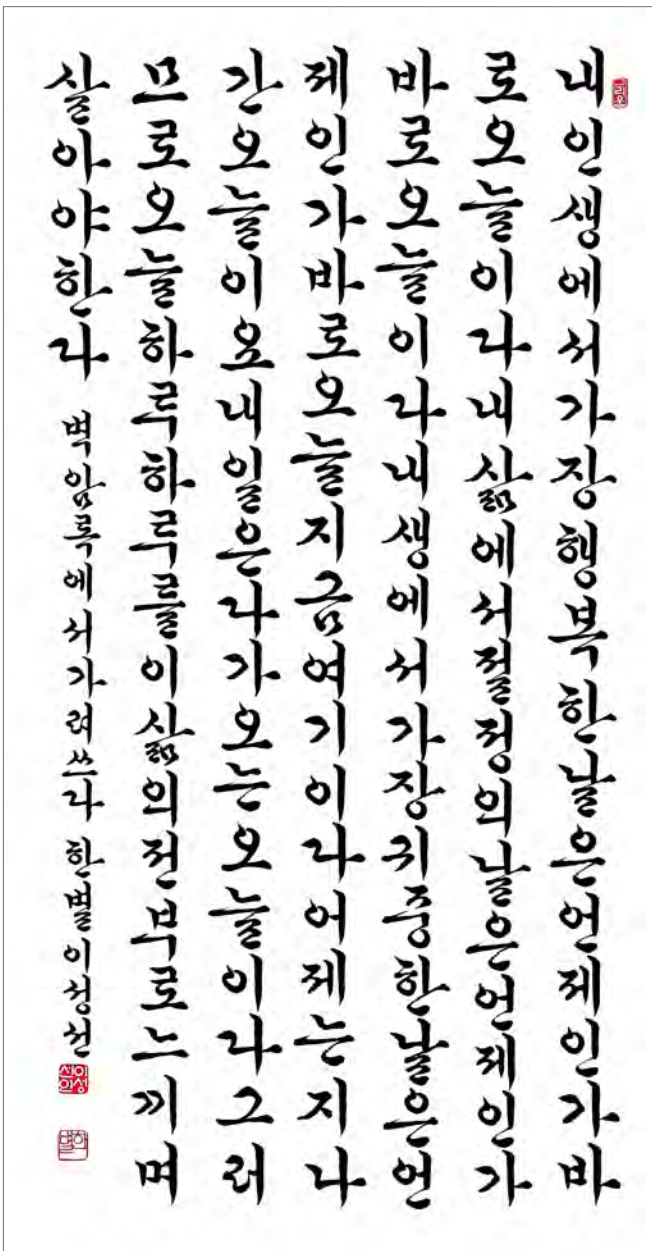 내인생에서가장행복한날은언제인가바
로오늘이다내삶에서절정의날은언제인가
바로오늘이다내생에서가장귀중한날은언
제인가바로오늘지금여기이다어제는지나
간오늘이오내일은다가오는오늘이다그러
므로오늘하루하루를이삶의전부로느끼며
살아야한다 벽암록에서가려쓰다 한별이성선
한별